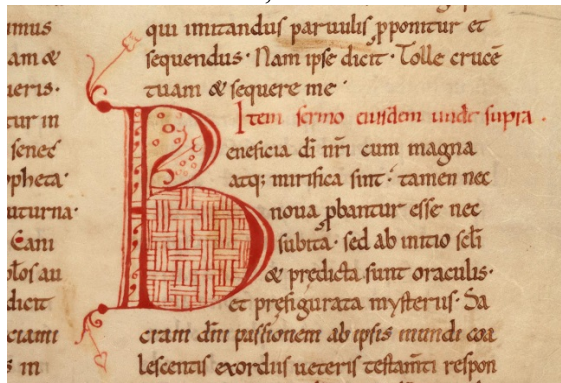 imus
am &
ueris·
tur in
senec
pheta·
uturna·
dicit
s in
qui imitandus paruulis ꝓponitur et
sequendus· Nam ipse dicit· Tolle crucē
tuam & sequere me·
Item sermo eiusdem unde supra·
Beneficia dī nr̄i cum magna
atq; mirifica sint· tamen nec
noua ꝓbantur esse nec
subita· sed ab initio scl̄i
& predicta sunt oraculis·
et prefigurata mysteriis· Sa
cram dn̄i passionem ab ipsis mundi coa
lescentis exordiis ueteris testam̄ti respon